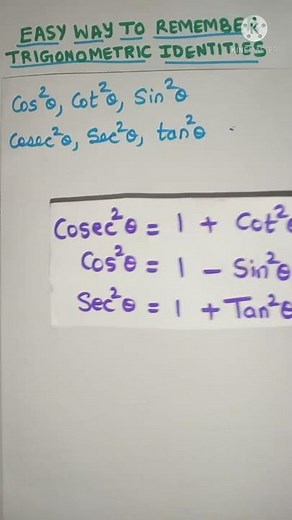 EASY WAY TO REMEMBER
TRIGONOMETRIC IDENTITIES
Cos²θ, Cot²θ, Sin²θ
Cosec²θ, Sec²θ, tan²θ
Cosec²θ = 1 + Cot²θ
Cos²θ = 1 - Sin²θ
Sec²θ = 1 + Tan²θ